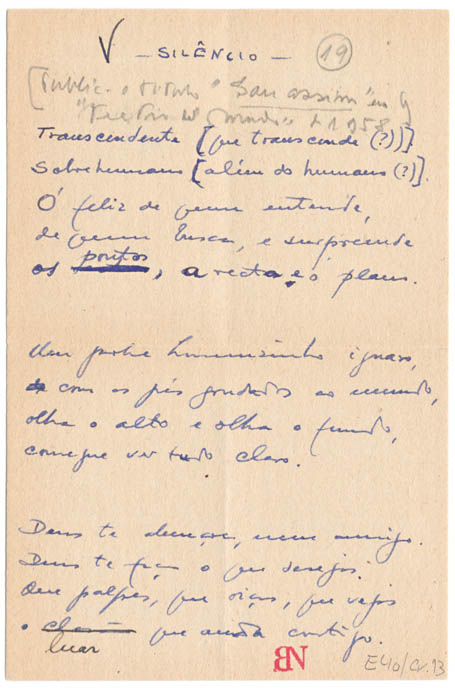 V — SILÊNCIO — 19
[Public. o título "Sou assim" em
"Teatro do Mundo" 1958]
Transcendente [que transcende (?)]
Sobrehumano [além do humano (?)].
Ó feliz de quem entende,
de quem busca, e surpreende
os pontos, a recta e o plano.
Um pobre homenzinho ignaro,
com os pés grudados ao mundo,
olha o alto e olha o fundo,
consegue ver tudo claro.
Deus te abençoe, meu amigo.
Deus te faça o que desejas.
Que palpes, que oiças, que vejas
o clarão que anda contigo.
luar
BN
E40/cx.13